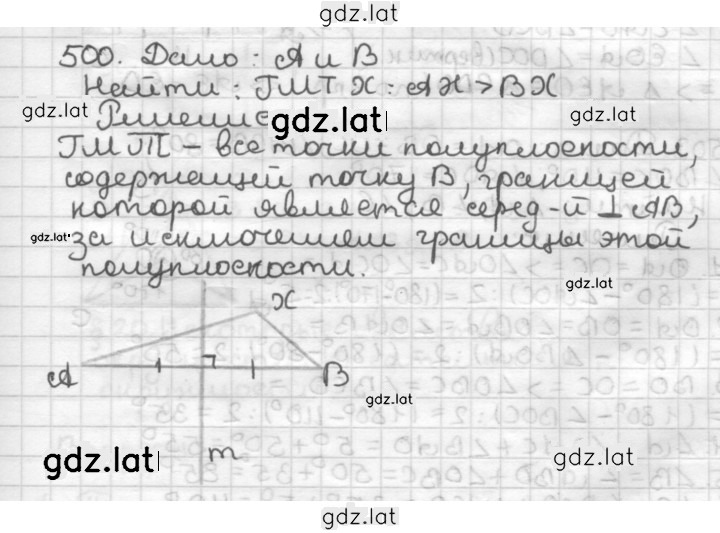 gdz.lat
500. Дано: A и B
Найти: ГМТ X: AX > BX
gdz.lat
Решение
gdz.lat
gdz.lat
ГМТ – все точки полуплоскости,
содержащей точку B, границей
которой является серед-й ⊥ AB,
gdz.lat
за исключением границы этой
полуплоскости.
gdz.lat
X
A
B
gdz.lat
m
gdz.lat
gdz.lat
gdz.lat